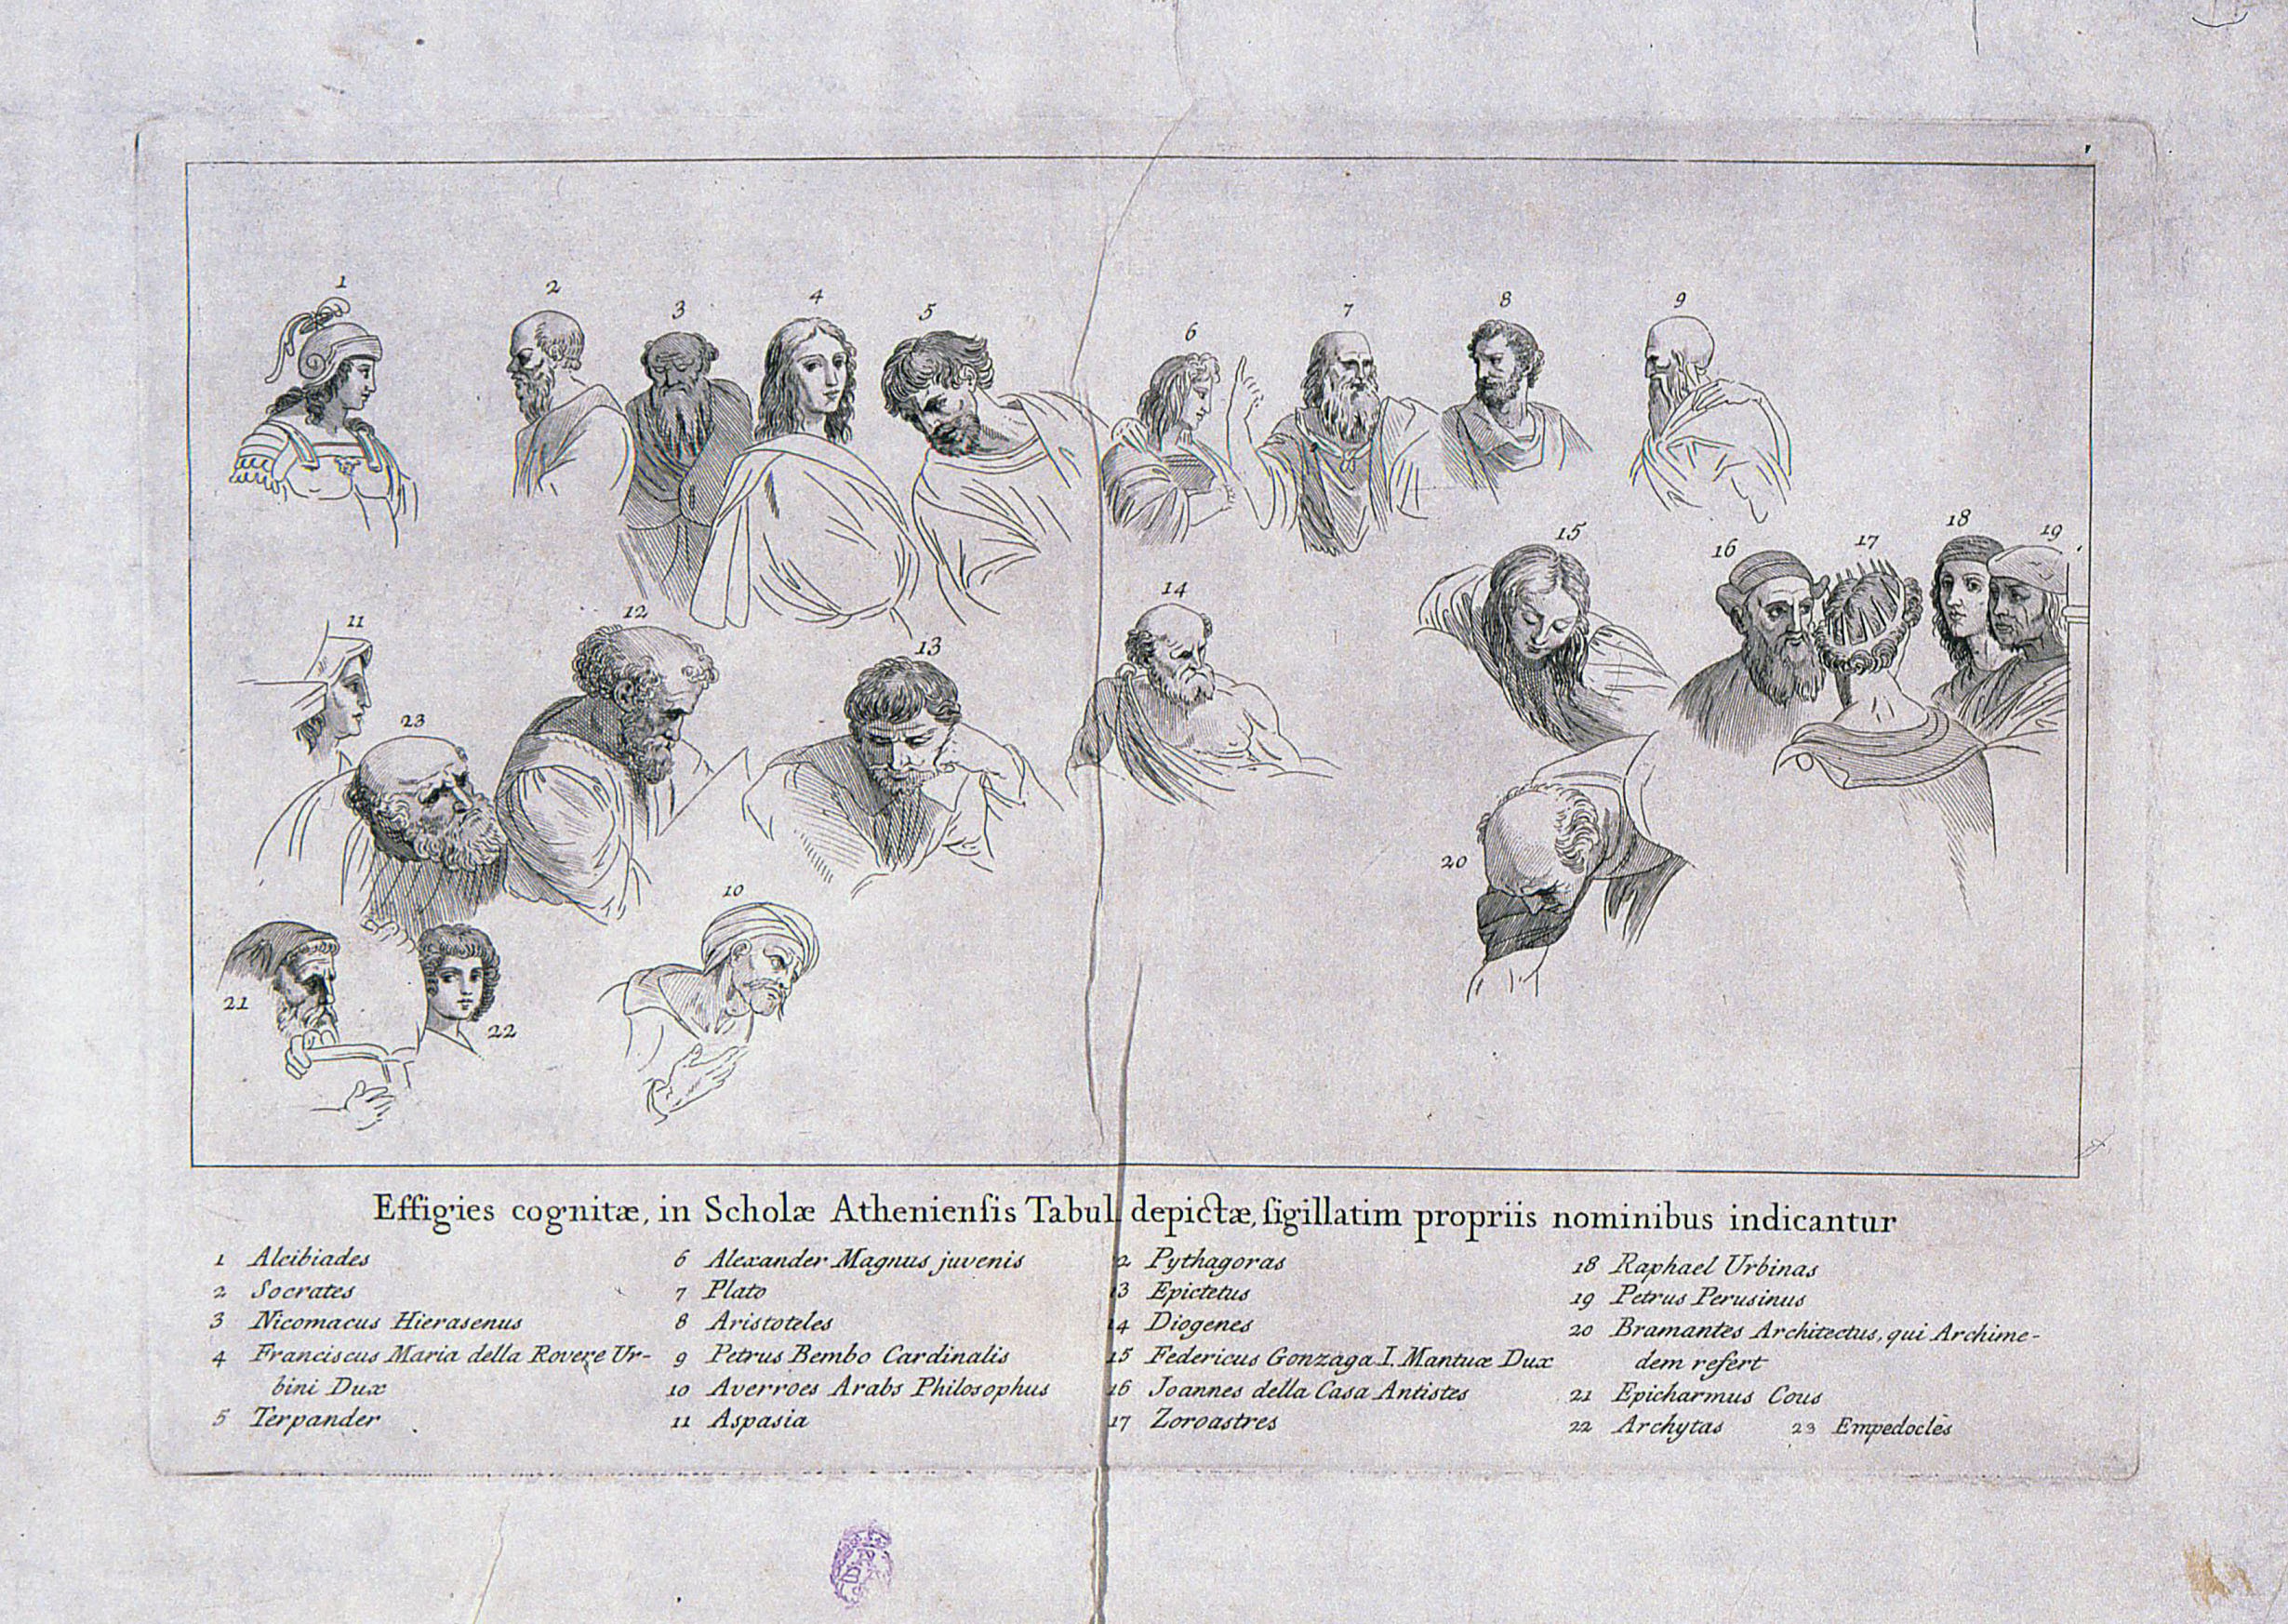 1
2
3
4
5
6
7
8
9
11
12
13
14
15
16
17
18
19
23
20
10
21
22
Effigies cognitæ, in Scholæ Athenienſis Tabul depictæ, ſigillatim propriis nominibus indicantur
1 Alcibiades
2 Socrates
3 Nicomacus Hierasenus
4 Franciscus Maria della Rovere Ur-
bini Dux
5 Terpander
6 Alexander Magnus juvenis
7 Plato
8 Aristoteles
9 Petrus Bembo Cardinalis
10 Averroes Arabs Philosophus
11 Aspasia
12 Pythagoras
13 Epictetus
14 Diogenes
15 Federicus Gonzaga I. Mantuæ Dux
16 Joannes della Casa Antistes
17 Zoroastres
18 Raphael Urbinas
19 Petrus Perusinus
20 Bramantes Architectus, qui Archime-
dem refert
21 Epicharmus Cous
22 Archytas 23 Empedocles